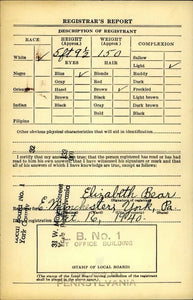 REGISTRAR'S REPORT
DESCRIPTION OF REGISTRANT
RACE
HEIGHT (Approx.)
WEIGHT (Approx.)
COMPLEXION
White ✓
5 ft 9½
150
Sallow
EYES
HAIR
Light ✓
Negro
Blue ✓
Blonde
Ruddy
Gray
Red
Dark
Oriental
Hazel
Brown ✓
Freckled
Brown
Black
Light Brown
Indian
Black
Gray
Dark Brown
Bald
Black
Filipino
Other obvious physical characteristics that will aid in identification
I certify that my answers are true; that the person registered has read or has had
read to him his own answers; that I have witnessed his signature or mark and that
all of his answers of which I have knowledge are true, except as follows:
Elizabeth Bear
E. Manchester, York, Pa.
16, 1940.
B. No. 1
OFFICE BUILDING
STAMP OF LOCAL BOARD
(The stamp of the Local Board having jurisdiction of the registrant
shall be placed in the above space.)
PENNSYLVANIA